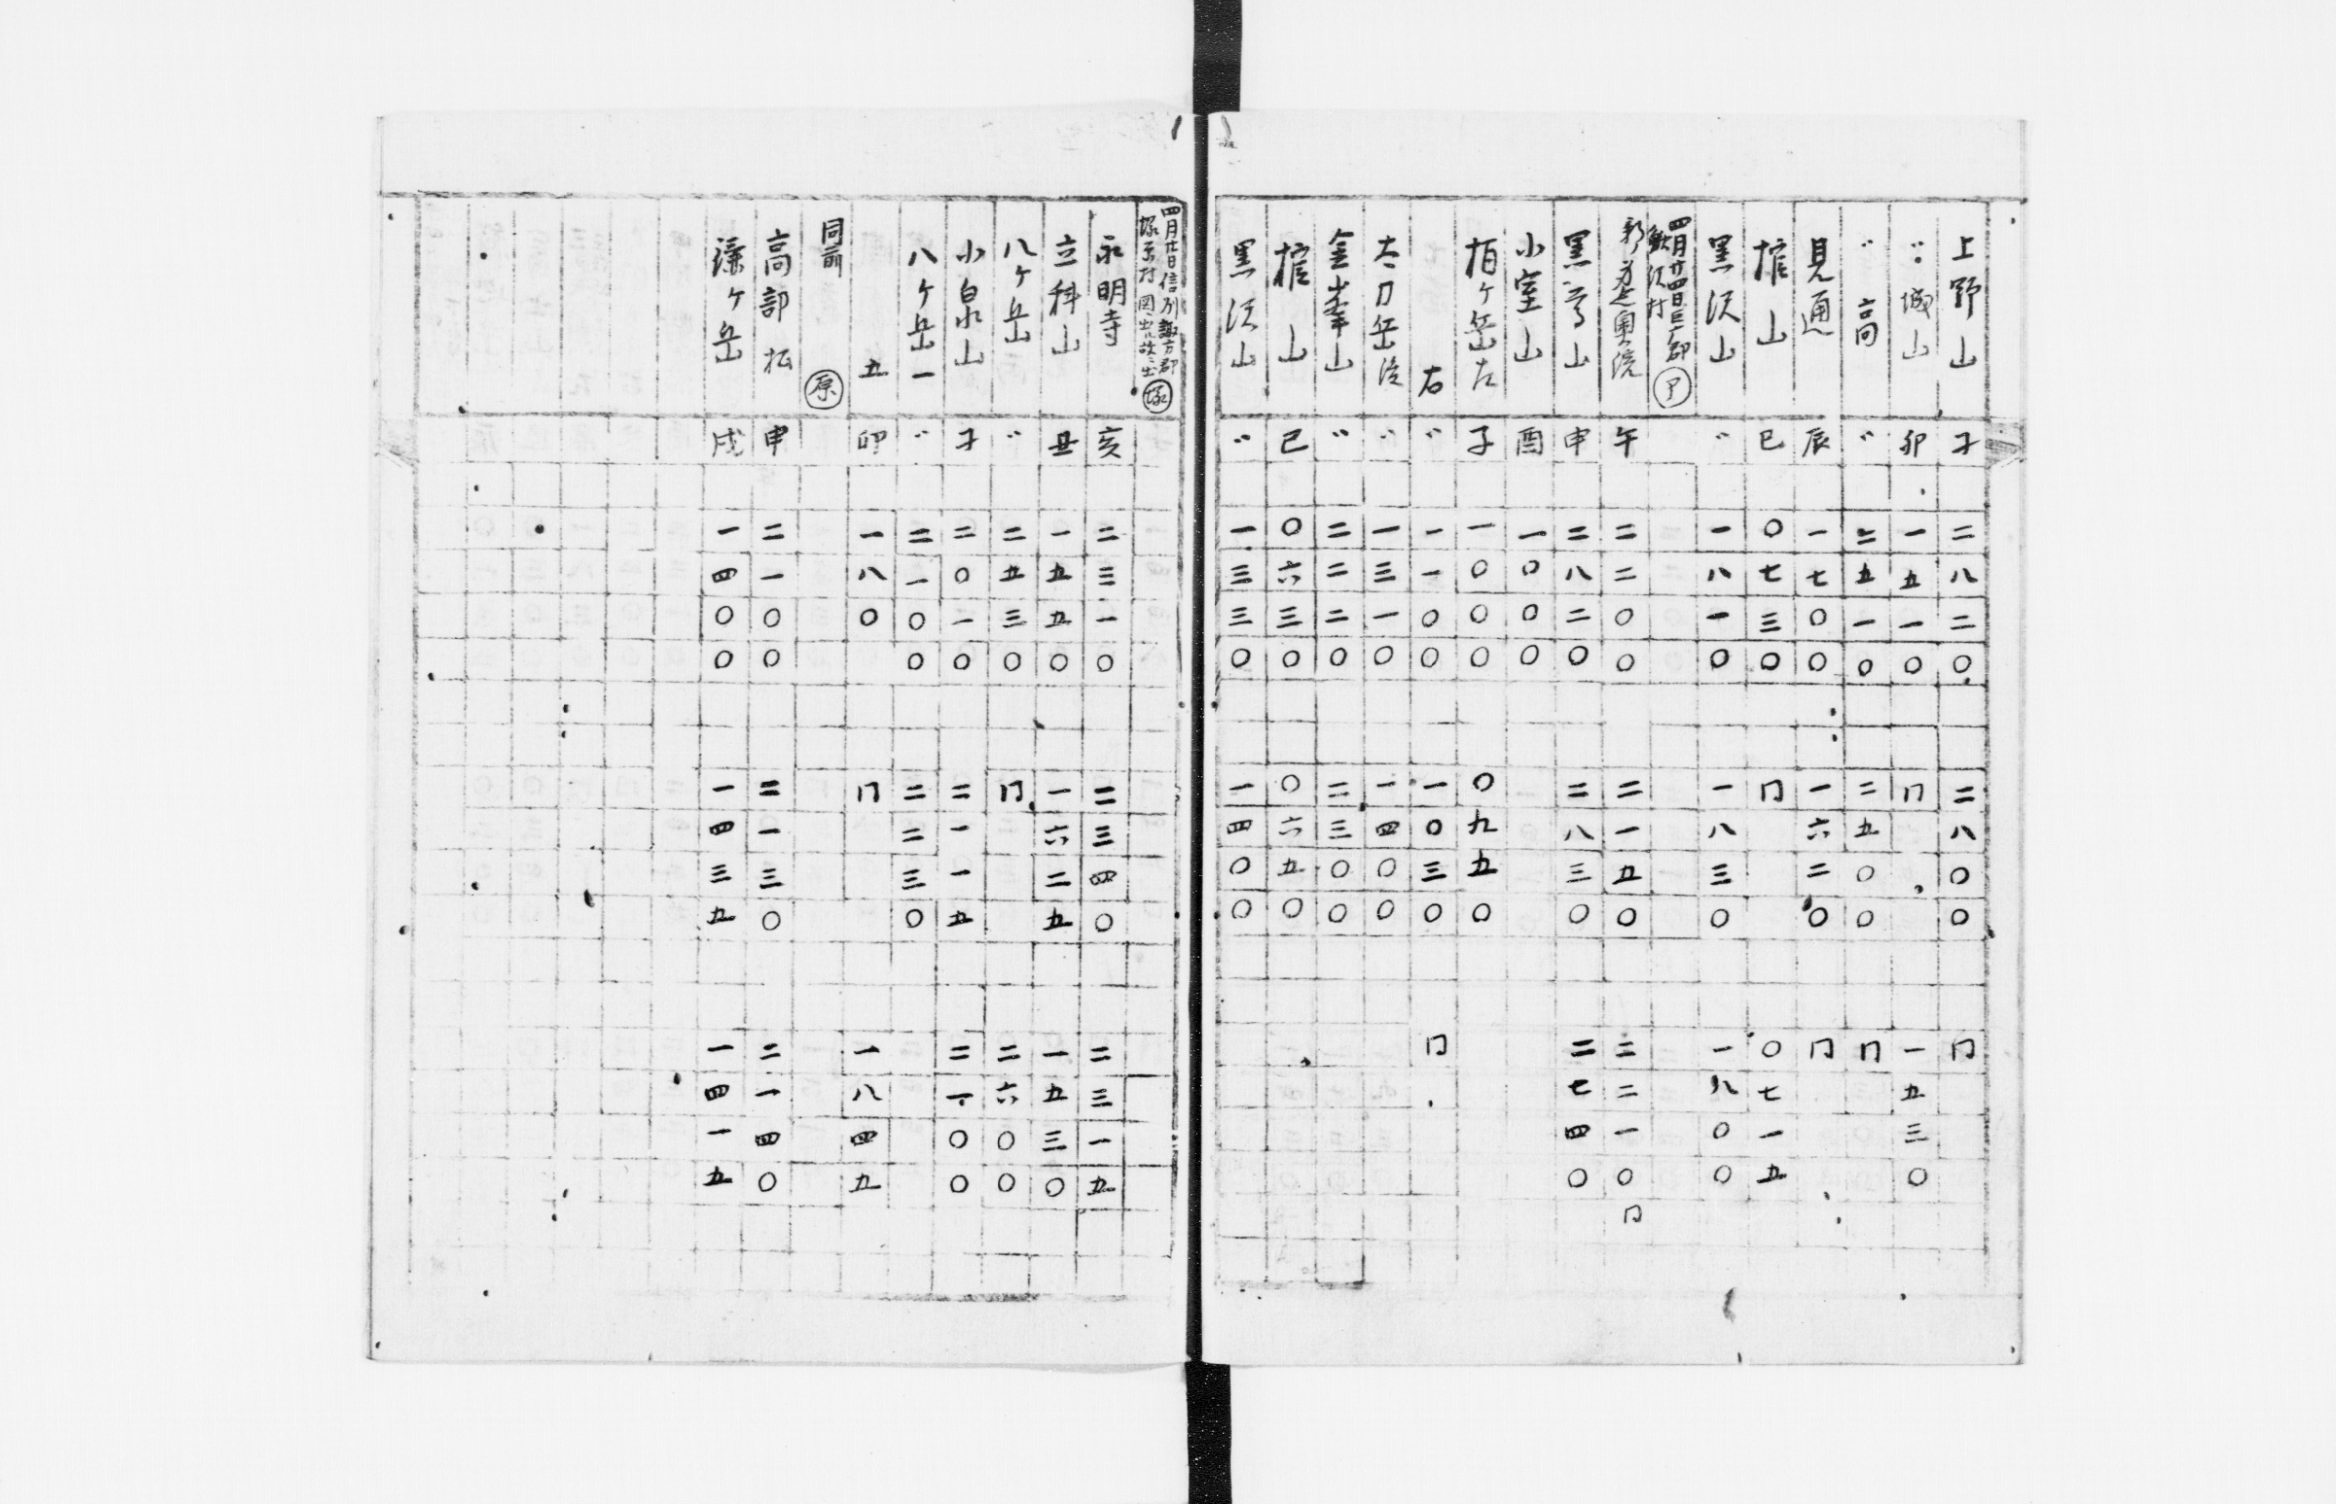 上野山 子 二八二〇 二八〇〇 冂
〃城山 卯 一五一〇 冂 一五三〇
〃高 〃 二五一〇 二五〇〇 冂
見通 辰 一七〇〇 一六二〇 冂
棺山 巳 〇七三〇 冂 〇七一五
黒沢山 〃 一八一〇 一八三〇 一八〇〇
四月廿四日 郡
沢村 ㋐
奥院 午 二二〇〇 二一五〇 二二一〇 冂
黒 山 申 二八二〇 二八三〇 二七四〇
小室山 酉 一〇〇〇
栢ヶ岳左 子 一〇〇〇 〇九五〇
右 〃 一一〇〇 一〇三〇 冂
太刀岳後 〃 一三一〇 一四〇〇
金峯山 〃 二二二〇 二三〇〇
棺山 巳 〇六三〇 〇六五〇
黒沢山 〃 一三三〇 一四〇〇
四月廿日信州諏方郡
塚原村 塚
永明寺 亥 二三一〇 二三四〇 二三一五
立科山 丑 一五五〇 一六二五 一五三〇
八ヶ岳 〃 二五三〇 冂 二六〇〇
小泉山 子 二〇一〇 二一一五 二一〇〇
八ヶ岳一 〃 二一〇〇 二二三〇
五 卯 一八〇 冂 一八四五
同前 原
高部払 申 二一〇〇 二一三〇 二一四〇
鎌ヶ岳 戌 一四〇〇 一四三五 一四一五